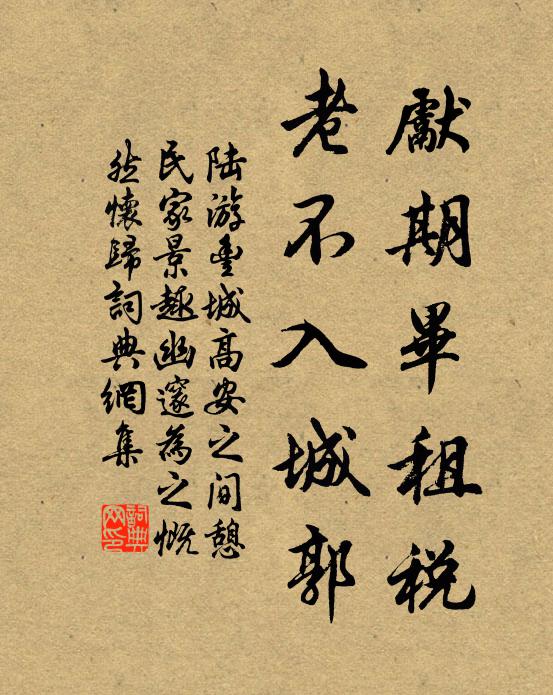 獻期畢租税
老不入城郭
陆游豊城高安之间憩
民家景趣幽邃為之慨
然懷歸詞典網集
詞典
网印